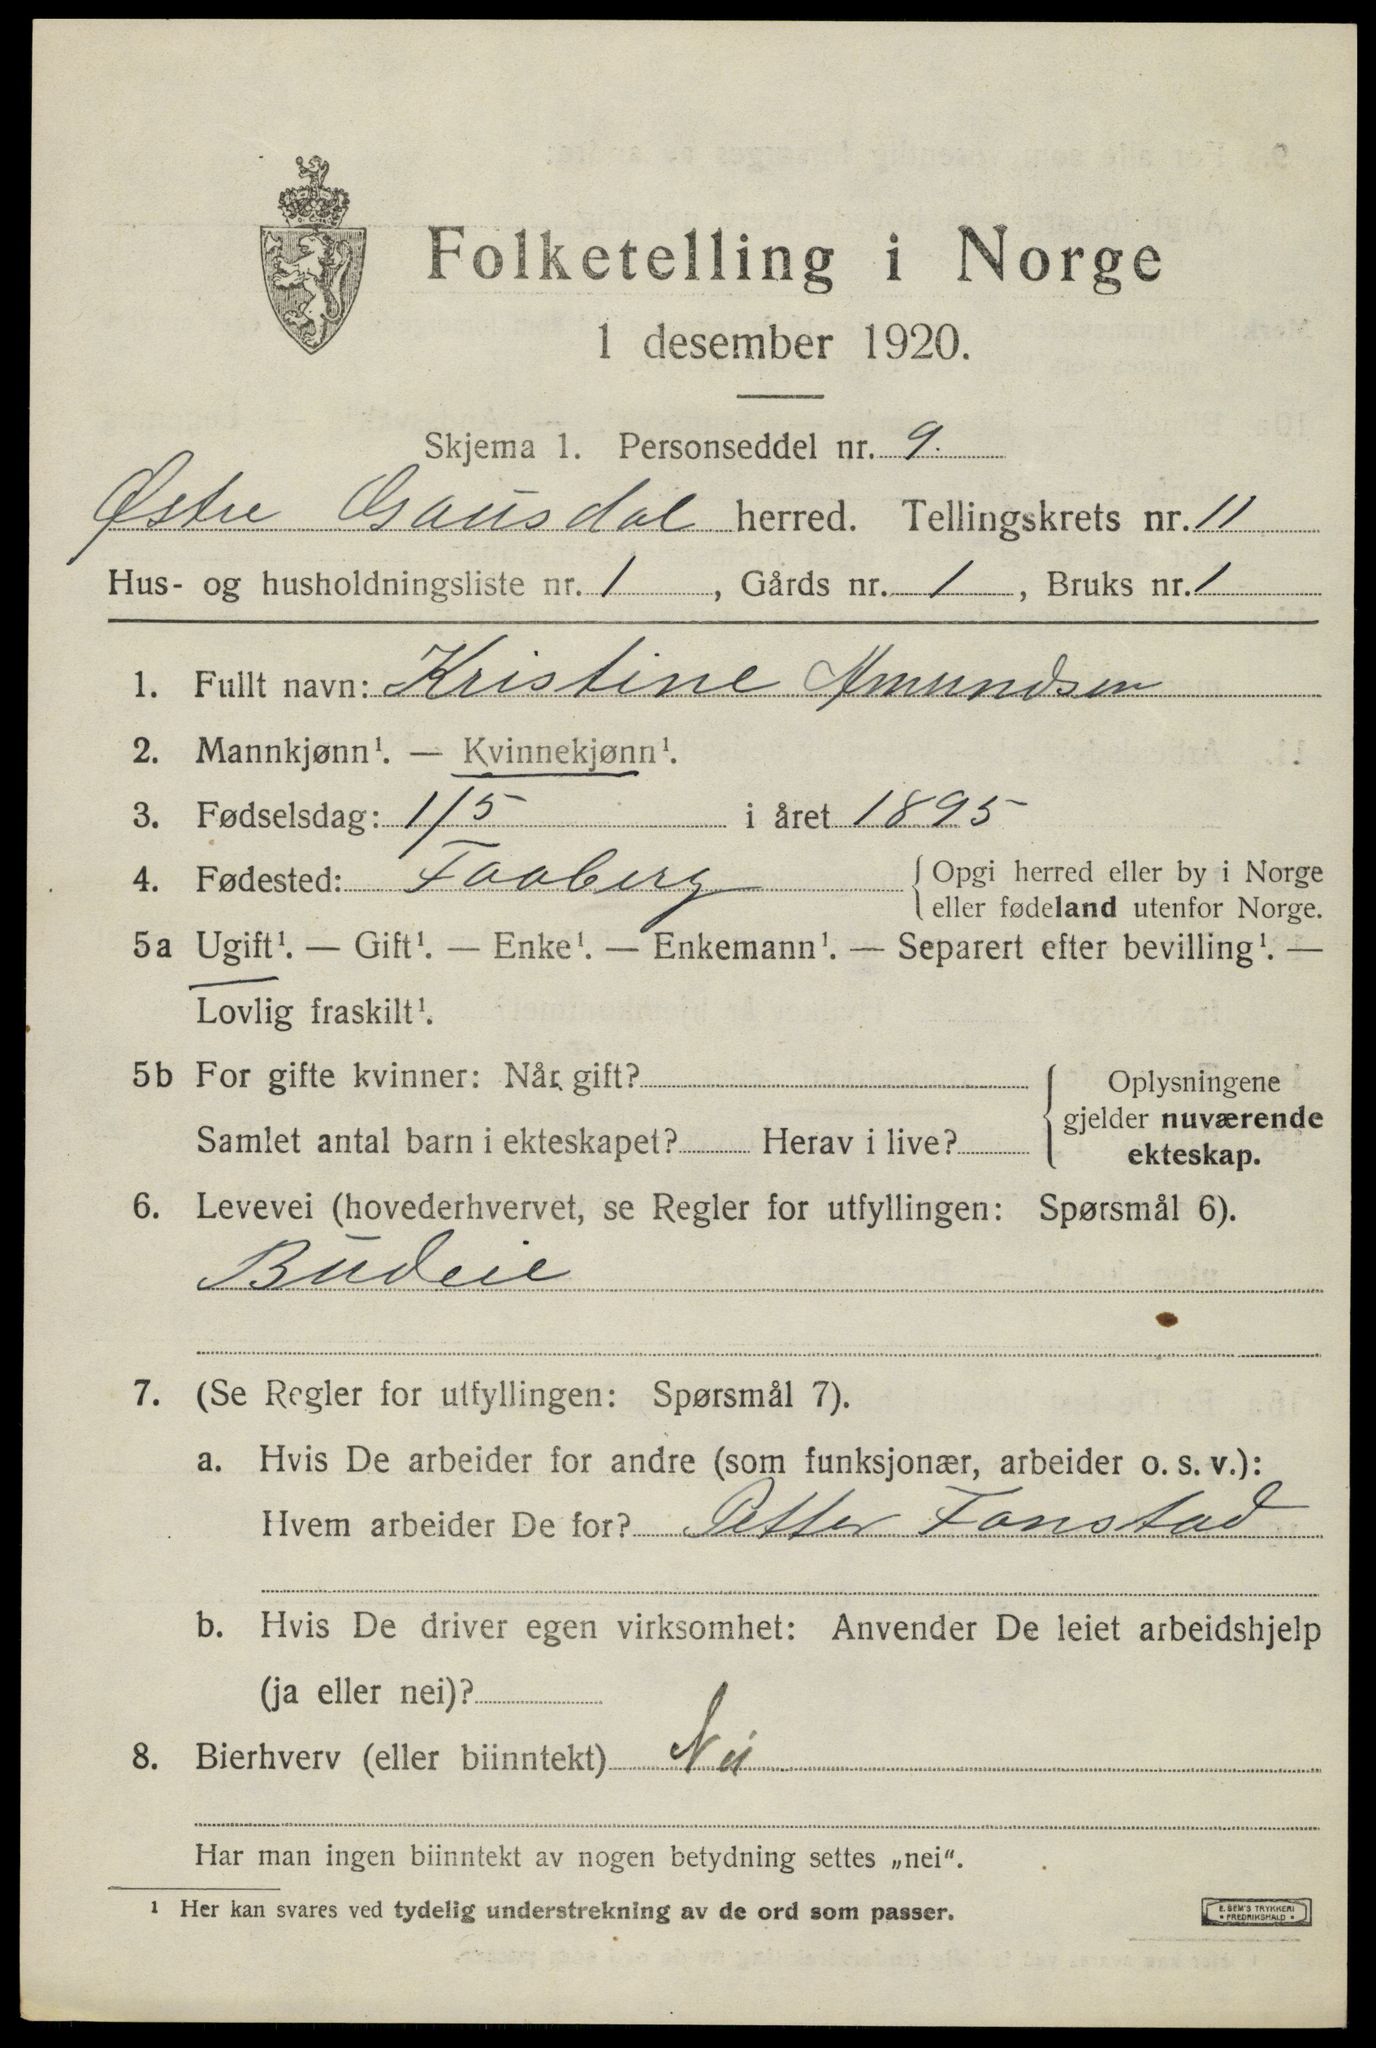 Folketelling i Norge
1 desember 1920.
Skjema 1. Personseddel nr. 9.
Østre Gausdal herred. Tellingskrets nr. 11
Hus- og husholdningsliste nr. 1, Gårds nr. 1, Bruks nr. 1
1. Fullt navn: Kristine Amundsen
2. Mannkjønn¹. — Kvinnekjønn¹.
3. Fødselsdag: 1/5 i året 1895
4. Fødested: Faaberg {Opgi herred eller by i Norge
eller fødeland utenfor Norge.
5a Ugift¹. — Gift¹. — Enke¹. — Enkemann¹. — Separert efter bevilling¹. —
Lovlig fraskilt¹.
5b For gifte kvinner: Når gift?
Samlet antal barn i ekteskapet? Herav i live?
{Oplysningene
gjelder nuværende
ekteskap.
6. Levevei (hovederhvervet, se Regler for utfyllingen: Spørsmål 6).
Budeie
7. (Se Regler for utfyllingen: Spørsmål 7).
a. Hvis De arbeider for andre (som funksjonær, arbeider o. s. v.):
Hvem arbeider De for? Petter Fonstad
b. Hvis De driver egen virksomhet: Anvender De leiet arbeidshjelp
(ja eller nei)?
8. Bierhverv (eller biinntekt) Nei
Har man ingen biinntekt av nogen betydning settes „nei“.
¹ Her kan svares ved tydelig understrekning av de ord som passer.
E. SEM'S TRYKKERI
• FREDRIKSHALD •